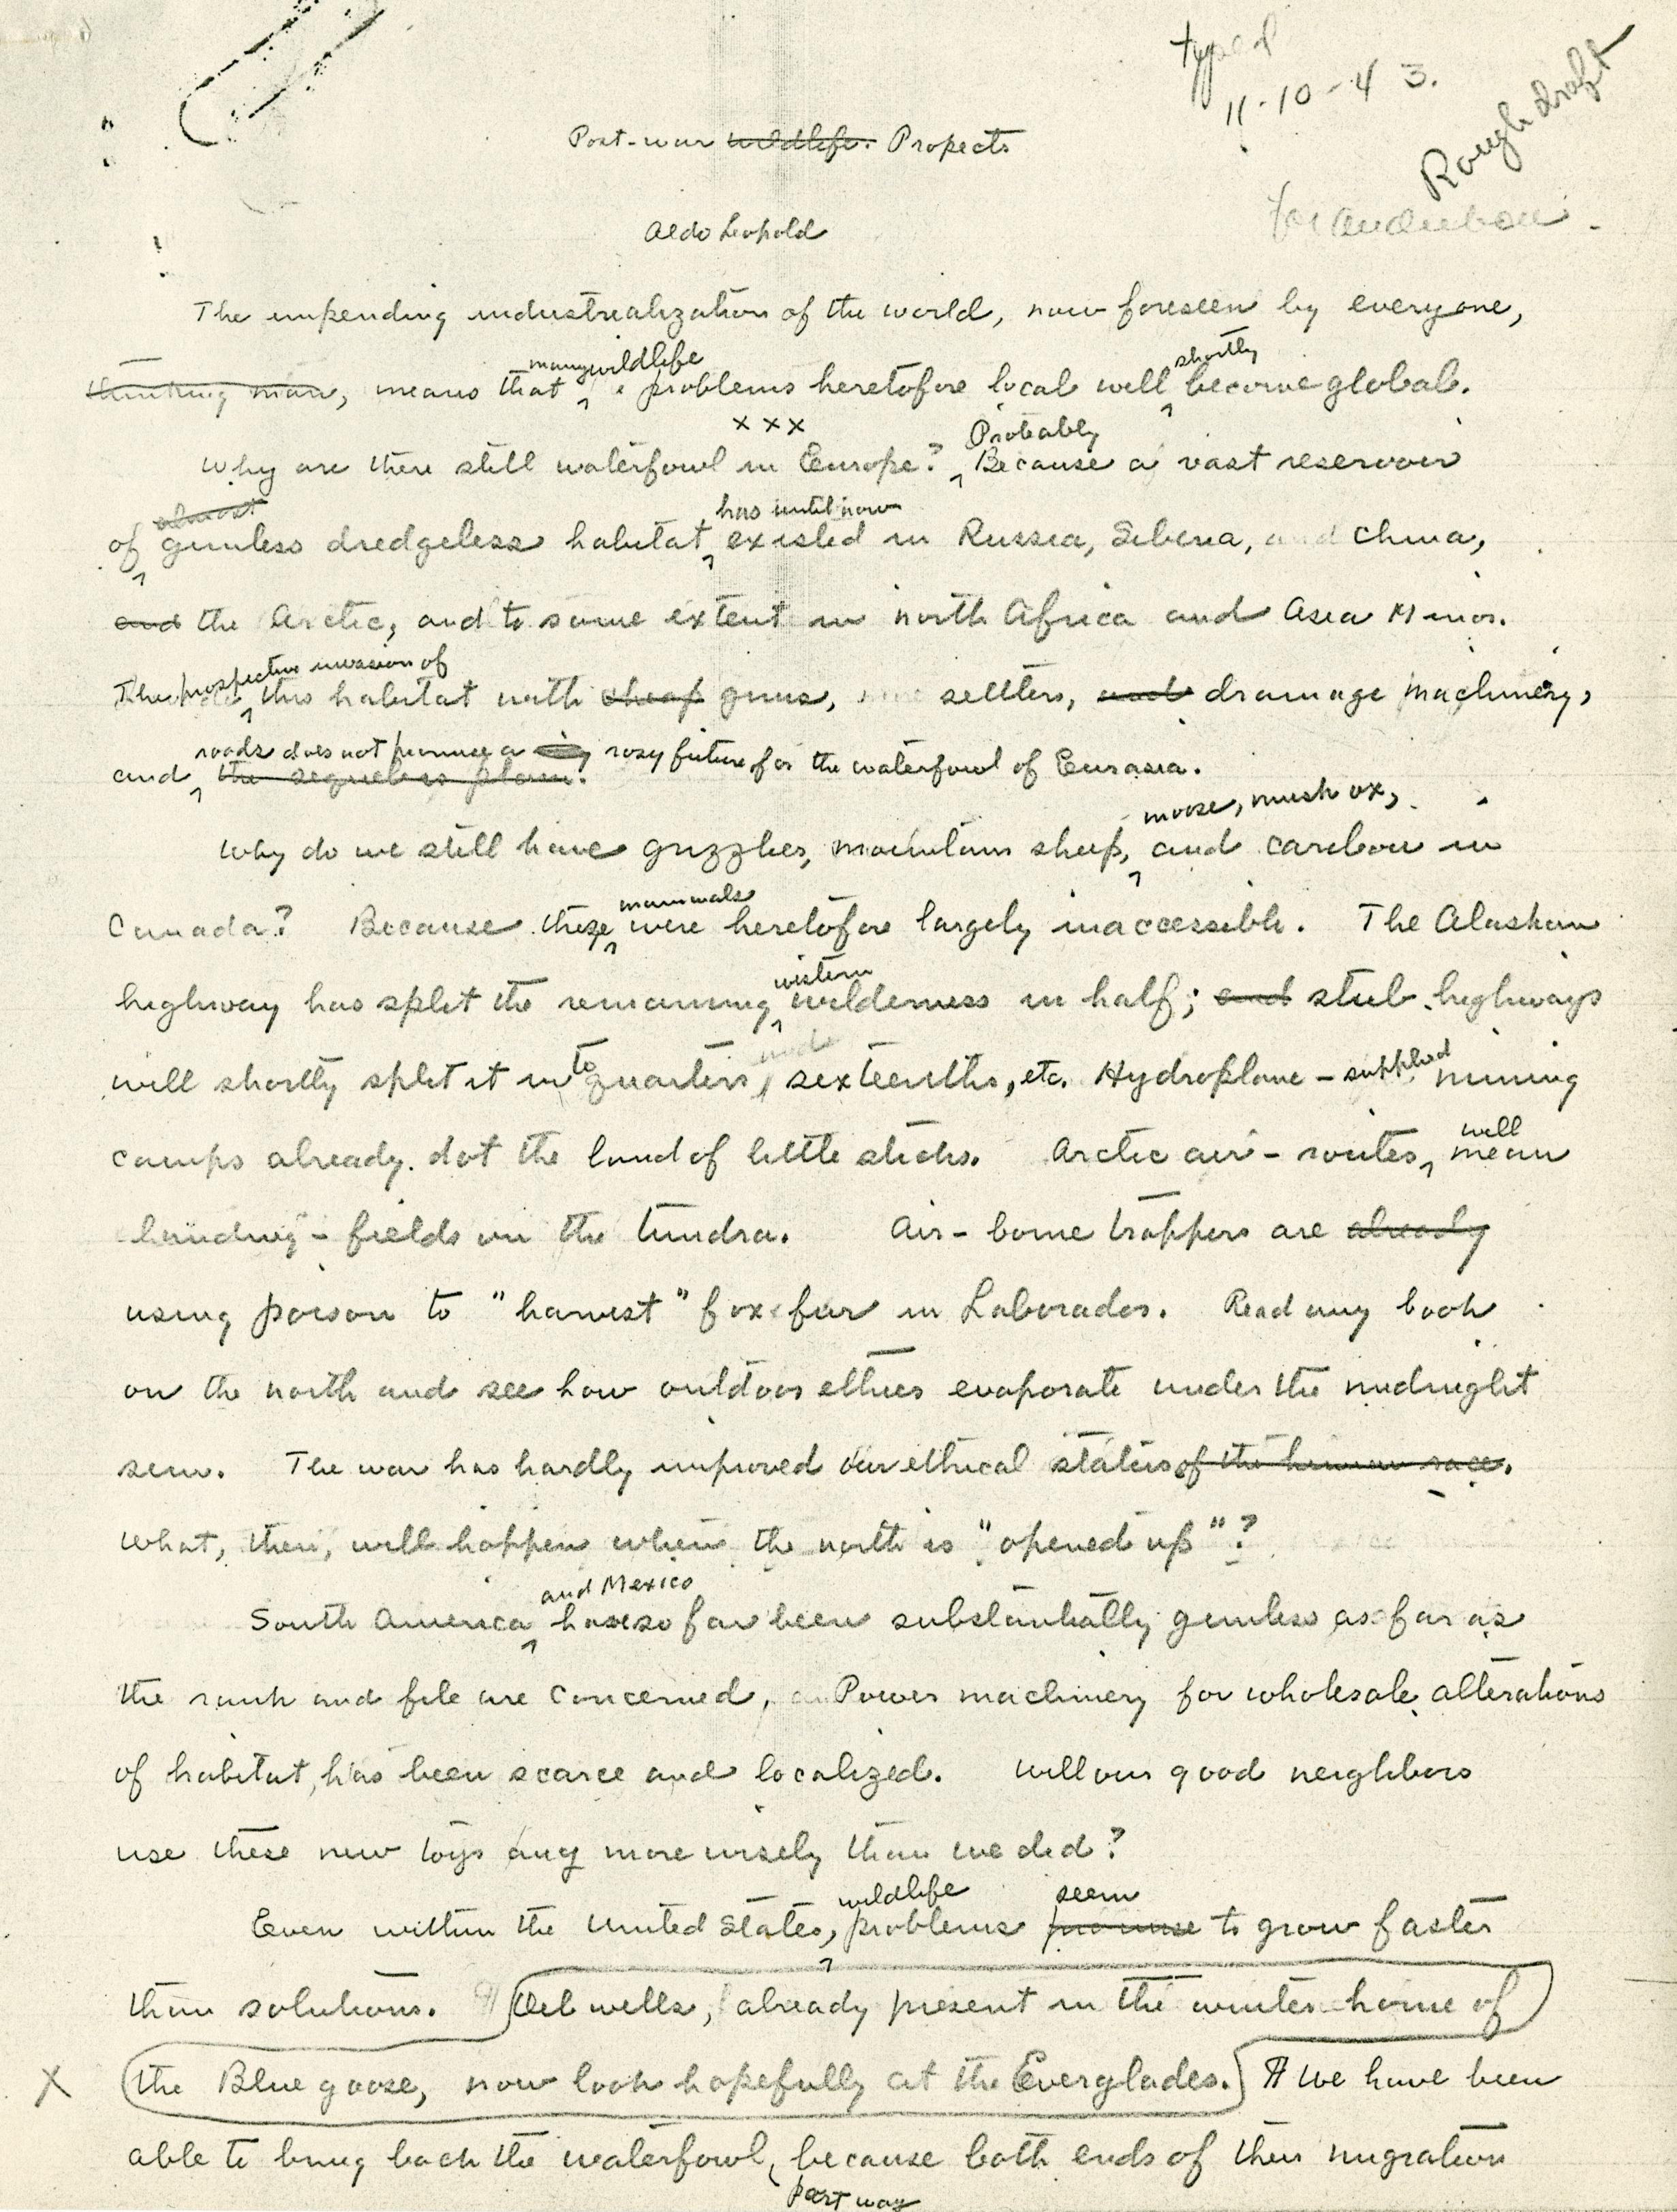 typed
11-10-43.
Rough draft
for Audubon.
Post-war wildlife. Propects
Aldo Leopold
The impending industrialization of the world, now foreseen by everyone,
many wildlife shortly
thinking man, means that problems heretofore local will become global.
x x x
Probably
Why are there still waterfowl in Europe? Because a vast reservoir
almost has until now
of gunless dredgeless habitat existed in Russia, Siberia, and China,
and the Arctic, and to some extent in north Africa and Asia Minor.
prospective invasion of
The this habitat with cheap guns, settlers, and drainage machinery,
roads does not promise a rosy future for the waterfowl of Eurasia.
and the sequel is plain.
moose, mush ox,
Why do we still have grizzlies, mountain sheep, and caribou in
mammals
Canada? Because these were heretofore largely inaccessible. The Alaskan
western
highway has split the remaining wilderness in half; and stub highways
and
will shortly split it into quarters, sixteenths, etc. Hydroplane-supplied mining
will
camps already dot the land of little sticks. Arctic air-routes mean
landing-fields on the tundra. Air-borne trappers are already
using poison to "harvest" fox fur in Laborador. Read any book
on the north and see how outdoor ethics evaporate under the midnight
sun. The war has hardly improved our ethical status of the human race.
What, then, will happen when the north is "opened up"?
and Mexico
South America have so far been substantially gunless as far as
the rank and file are concerned, Power machinery for wholesale alterations
of habitat, has been scarce and localized. Will our good neighbors
use these new toys any more wisely than we did?
wildlife seem
Even within the United States, problems promise to grow faster
than solutions. ¶ Oil wells, already present in the winter home of
X the Blue goose, now look hopefully at the Everglades. ¶ We have been
able to bring back the waterfowl, because both ends of their migration
part way